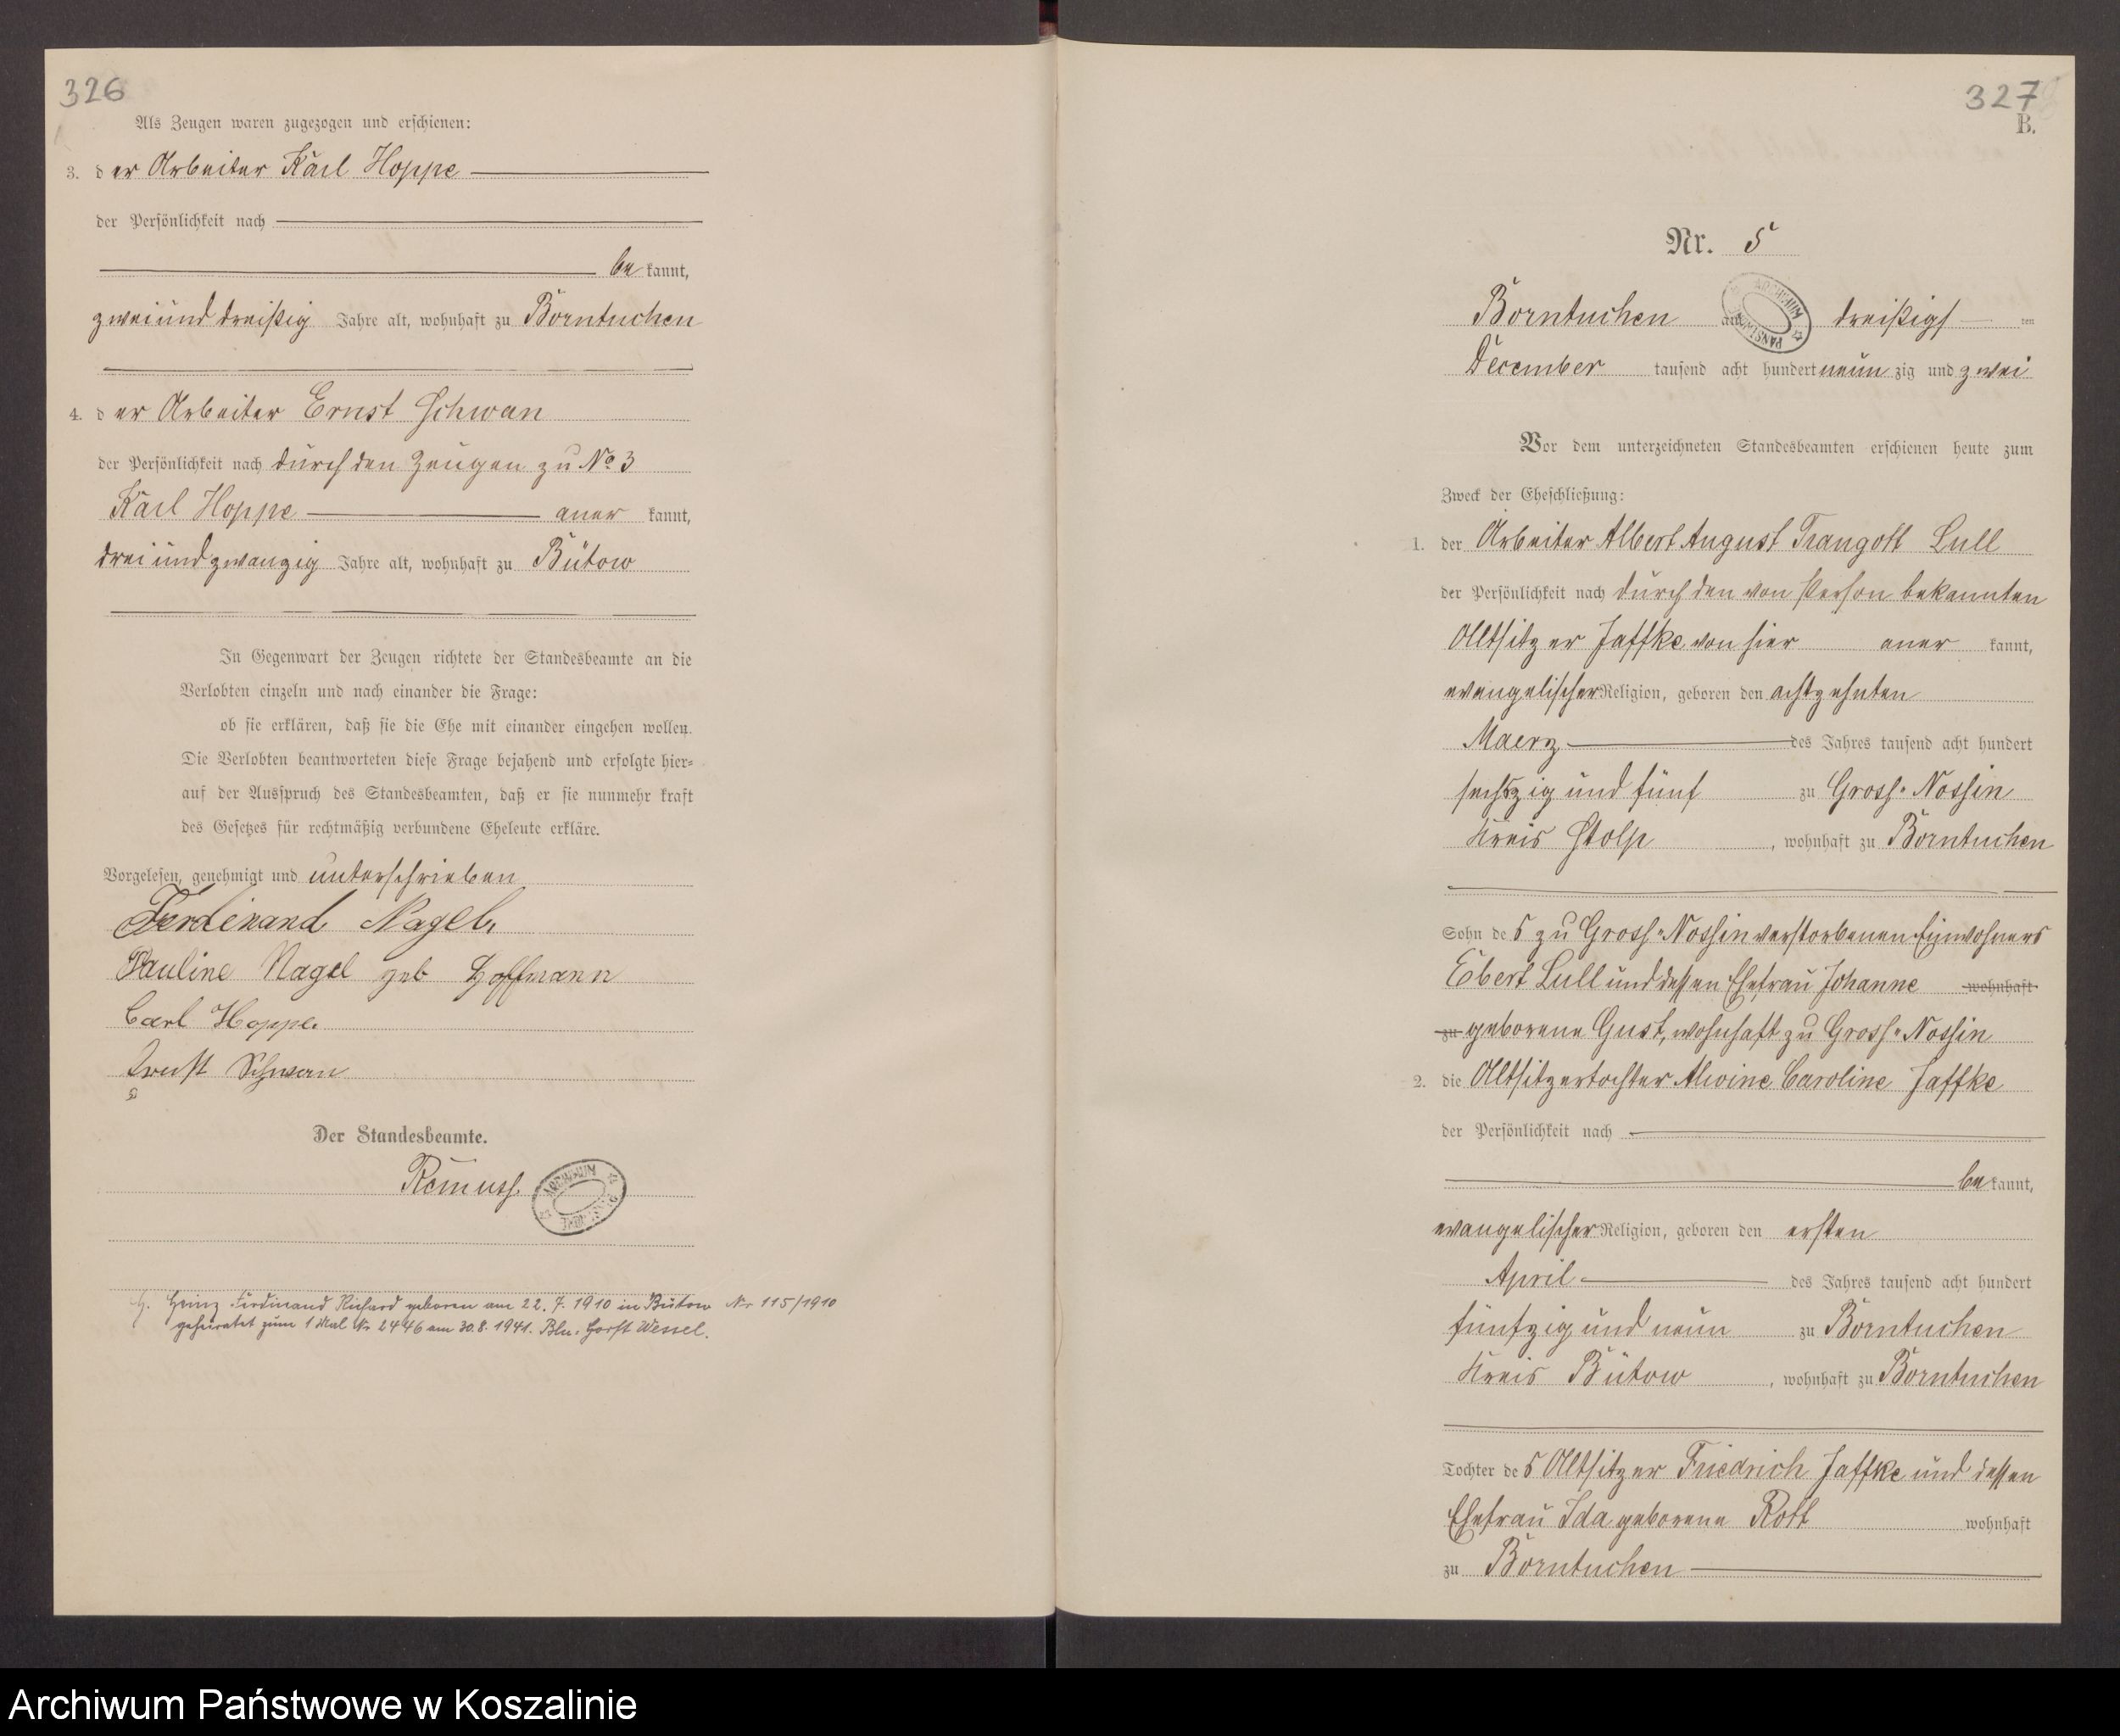 326
Als Zeugen waren zugezogen und erschienen:
3. der Arbeiter Karl Hoppe
der Persönlichkeit nach
bekannt,
zweiunddreißig Jahre alt, wohnhaft zu Borntuchen
4. der Arbeiter Ernst Schwan
der Persönlichkeit nach durch den Zeugen zu No 3
Karl Hoppe anerkannt,
dreiundzwanzig Jahre alt, wohnhaft zu Bütow
In Gegenwart der Zeugen richtete der Standesbeamte an die
Verlobten einzeln und nach einander die Frage:
ob sie erklären, daß sie die Ehe mit einander eingehen wollen.
Die Verlobten beantworteten diese Frage bejahend und erfolgte hier-
auf der Ausspruch des Standesbeamten, daß er sie nunmehr kraft
des Gesetzes für rechtmäßig verbundene Eheleute erkläre.
Vorgelesen, genehmigt und unterschrieben
Ferdinand Nagel
Pauline Nagel geb Hoffmann
Carl Hoppe
Ernst Schwan
Der Standesbeamte.
Remuss
Heinz Ferdinand Richard geboren am 22. 7. 1910 in Bütow Nr 115/1910
geheiratet zum 1 Mal Nr 2446 am 30.8.1941. Bln. Horst Wessel.
327
B.
Nr. 5
Borntuchen am dreißigsten
December tausend acht hundert neunzig und zwei
Vor dem unterzeichneten Standesbeamten erschienen heute zum
Zweck der Eheschließung:
1. der Arbeiter Albert August Traugott Lull
der Persönlichkeit nach durch den von Person bekannten
Altsitzer Jaffke von hier anerkannt,
evangelischer Religion, geboren den achtzehnten
Maerz des Jahres tausend acht hundert
sechszig und fünf zu Gross-Nossin
Kreis Stolp, wohnhaft zu Borntuchen
Sohn des zu Gross-Nossin verstorbenen Einwohners
Ebert Lull und dessen Ehefrau Johanne wohnhaft
zu geborene Gust, wohnhaft zu Gross-Nossin
2. die Altsitzertochter Alwine Caroline Jaffke
der Persönlichkeit nach
bekannt,
evangelischer Religion, geboren den ersten
April des Jahres tausend acht hundert
fünfzig und neun zu Borntuchen
Kreis Bütow, wohnhaft zu Borntuchen
Tochter des Altsitzer Friedrich Jaffke und dessen
Ehefrau Ida geborene Rott wohnhaft
zu Borntuchen
Archiwum Państwowe w Koszalinie